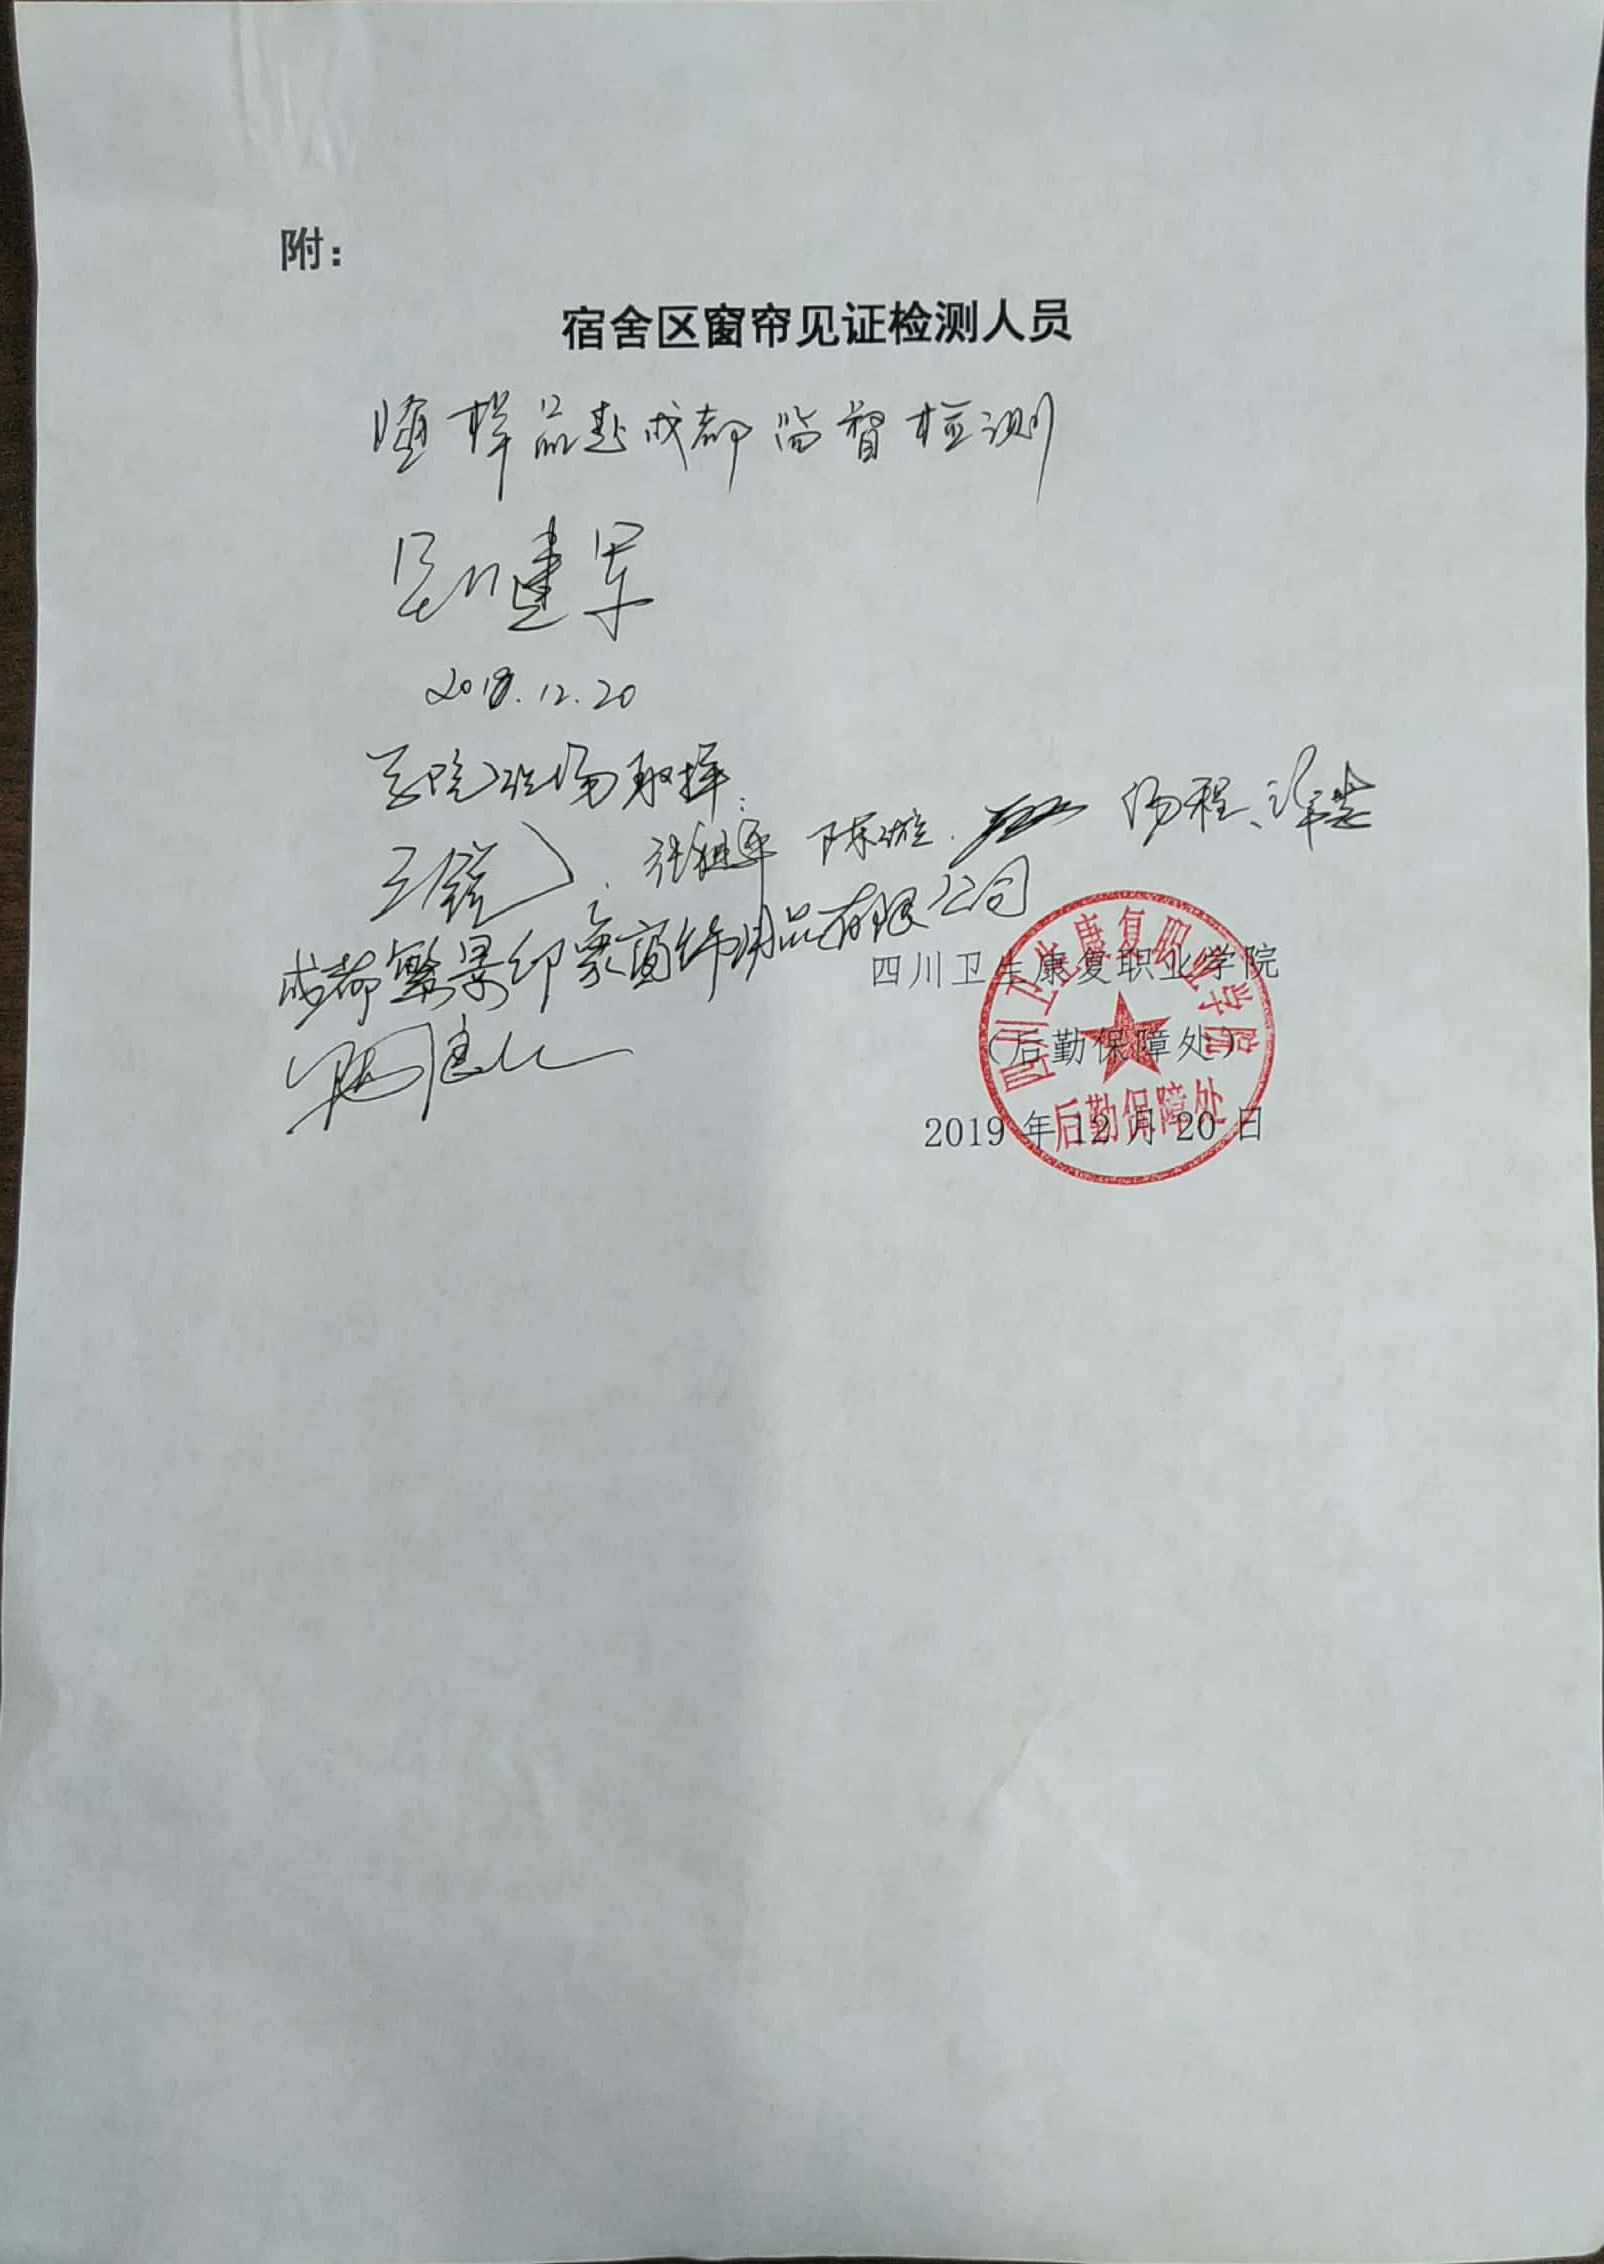 附：
宿舍区窗帘见证检测人员
随样品赴成都监督检测
建军
2019.12.20
学院现场取样：
王 张 陈 杨程、
成都繁景印象窗饰用品有限公司
四川卫生康复职业学院
（后勤保障处）
2019 年 12 月 20 日
四川卫生康复职业学院
后勤保障处